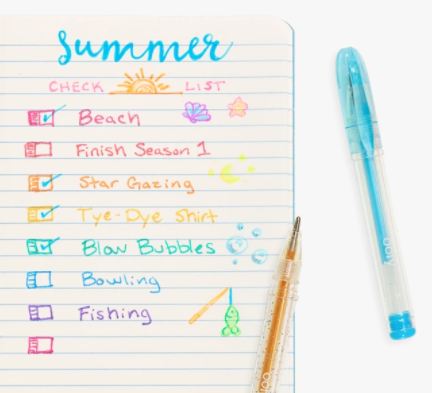 Summer
CHECK LIST
Beach
Finish Season 1
Star Gazing
Tye-Dye Shirt
Blow Bubbles
Bowling
Fishing